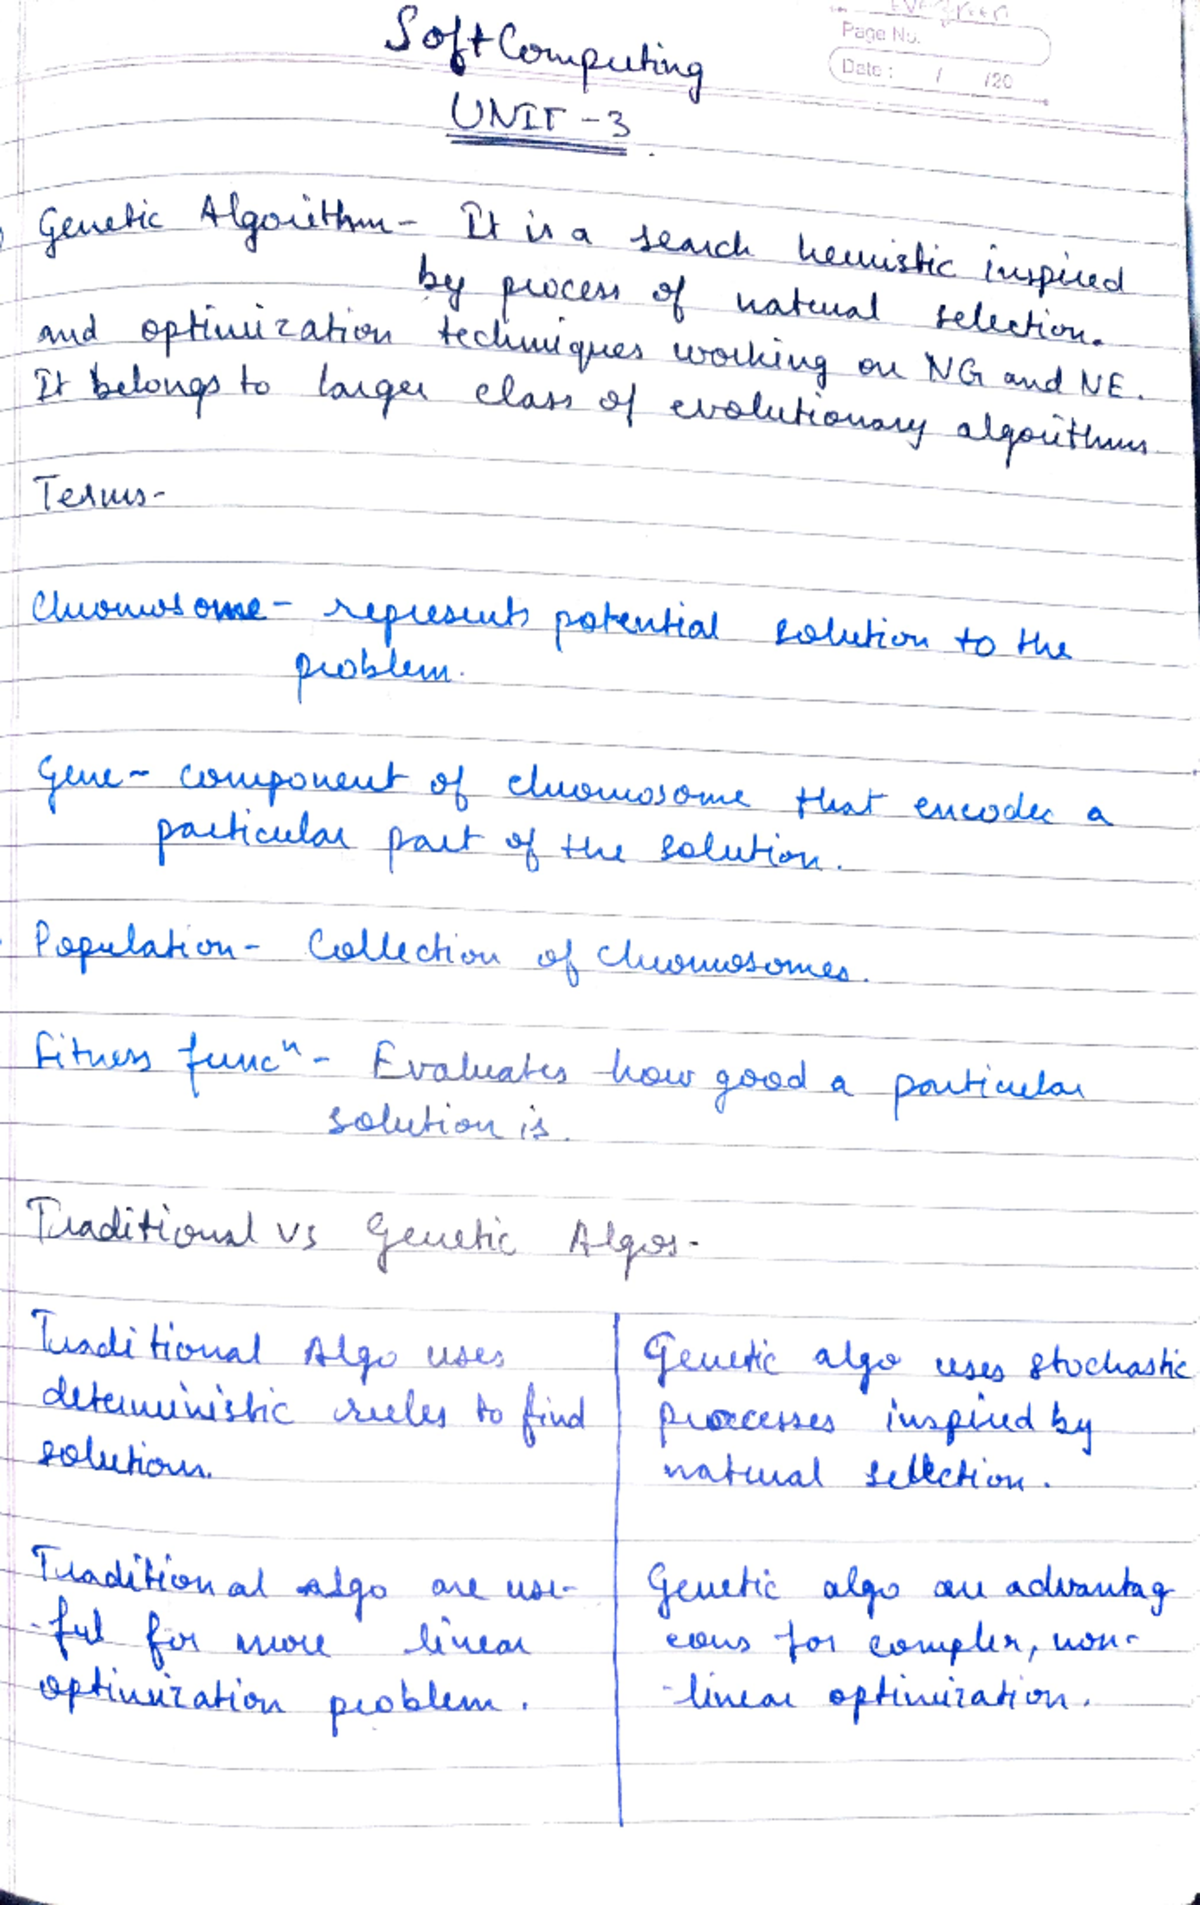 Evergreen
Page No.
Date : / /20
Soft Computing
UNIT - 3
Genetic Algorithm - It is a search heuristic inspired
by process of natural selection.
and optimization techniques working on NG and NE.
It belongs to larger class of evolutionary algorithms
Terms-
Chromosome - represents potential solution to the
problem.
Gene - component of chromosome that encodes a
particular part of the solution.
Population - Collection of chromosomes.
Fitness funcⁿ - Evaluates how good a particular
solution is.
Traditional vs Genetic Algos-
Traditional Algo uses
deterministic rules to find
solutions.
Genetic algo uses stochastic
processes inspired by
natural selection.
Traditional algo are use-
-ful for more linear
optimization problem.
Genetic algo are advantag
eous for complex, non-
-linear optimization.